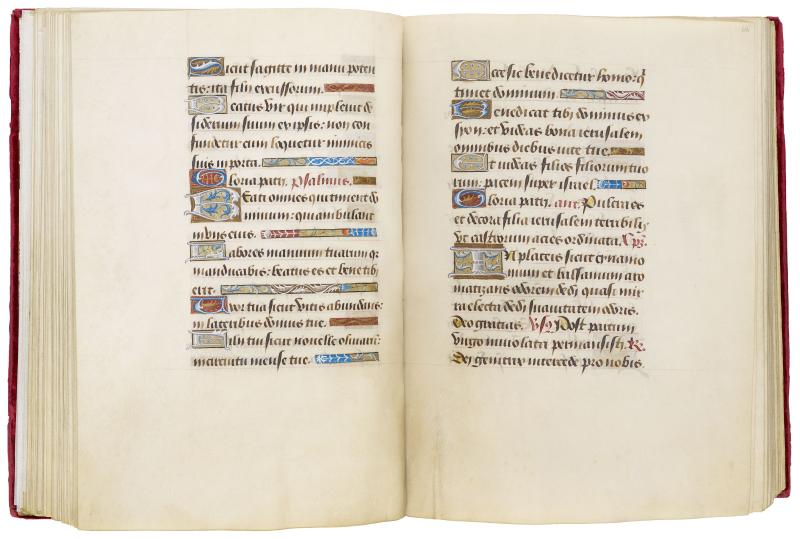 Sicut sagitte in manu poten
tis: ita filii excussorum.
Beatus vir qui impleuit de
siderium suum ex ipsis: non con
fundetur cum loquetur inimicis
suis in porta.
Gloria patri. Psalmus.
Beati omnes qui timent do
minum: qui ambulant
in viis eius.
Labores manuum tuarum qr
manducabis: beatus es et bene tibi
erit.
Uxor tua sicut vitis abundans:
in lateribus domus tue.
Filii tui sicut nouelle oliuarum:
in circuitu mense tue.
Ecce sic benedicetur homo: q
timet dominum.
Benedicat tibi dominus ex
syon: et videas bona ierusalem
omnibus diebus vite tue.
Et videas filios filiorum tuo
rum: pacem super israel.
Gloria patri. ant. Pulcra es
et decora filia ierusalem terribilis
vt castrorum acies ordinata. Cap.
In plateis sicut cynamo
mum et balsamum aro
matizans odorem dedi: quasi mir
ra electa dedi suauitatem odoris.
Deo gratias. Vs. Post partum
virgo inuiolata permansisti. R.
Dei genitrix intercede pro nobis.